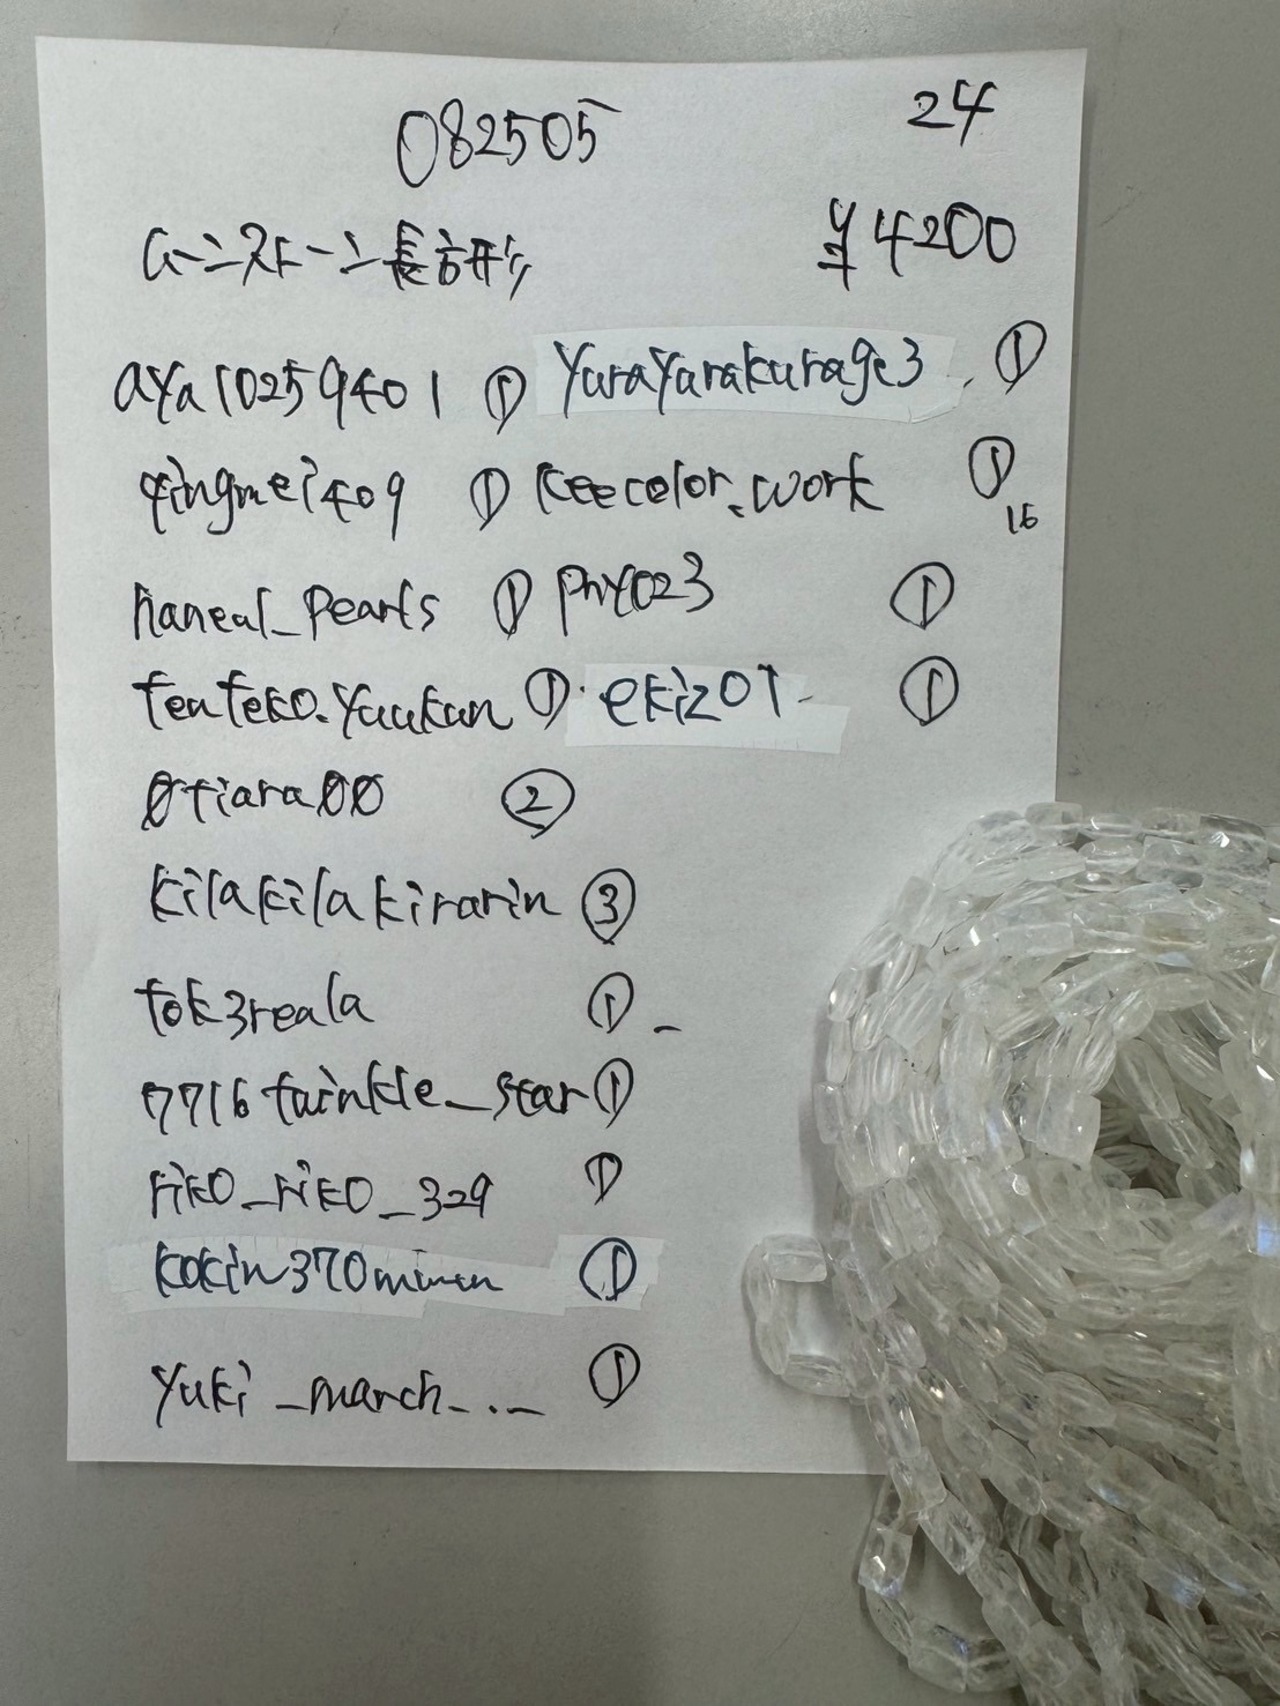 082505 24
ムーンストーン長方形 ¥4200
aya10259401 ① yurayurakurage3 ①
qingmei409 ① keecolor.work ①
16
haneal_pearls ① pny1023 ①
tenteko.yuukan ① ekiz01 ①
0tiara00 ②
kilakilakirarin ③
tok3reala ①
7716twinkle_star ①
riko_riko_329 ①
kokin370minmin ①
yuki_march_._ ①